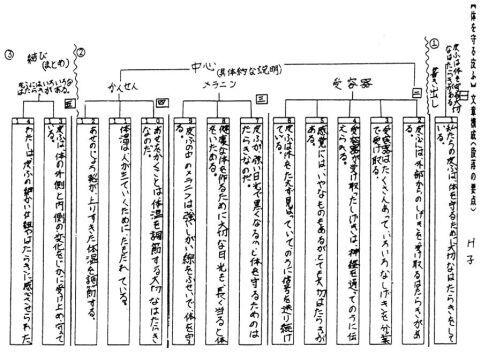 《体を守る皮ふ》文章構成〈段落の要点〉
H子
① 書き出し
皮ふは体を守る大切なはたらきがある
一
1 私たちの皮ふは、体を守るために大切なはたらきをしている。
② 中心(具体的な説明)
受容器
二
2 皮ふには、外部からのしげきを受け取るはたらきがある。
3 受容器はたくさんあって、いろいろなしげきを分業で受け取る。
4 受容器が受け取ったしげきは、神経を通ってのうに伝えられる。
5 感覚にはいやなものもあるが、とても大切なはたらきが
6 皮ふは体を
メラニン
三
7 皮ふが強い日光で黒くなるのも体を守るためのはたらきなのだ。
8 健康な体を作るために大切な日光も、長く当ると体をいためる。
9 皮ふの中のメラニンは強いしがい線をふせいで体を守る。
かんせん
四
0 あせをかくことは体温を調節する大切なはたらきなのだ。
1 体温は人が生きていくために一定にたもたれている。
2 あせのじょう発が上りすぎた体温を調節する。
③ 結び(まとめ)
皮ふにはいろいろなはたらきがある。
五
3 皮ふは、体の外側と内側の変化をじかに受け止め守っている。
4 わたしは皮ふの細かい仕組みやはたらきに感心させられた